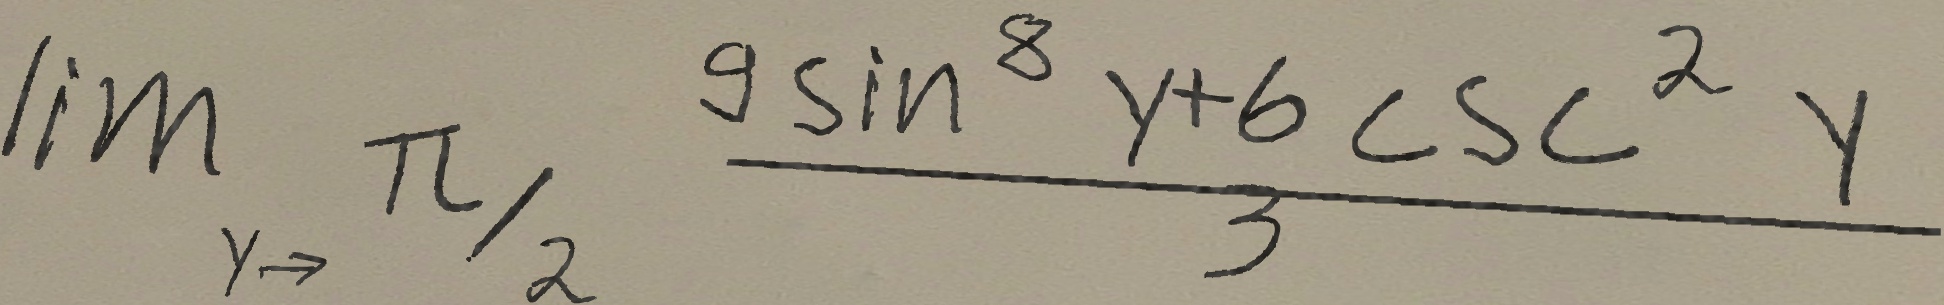 lim y→π/2 (9 sin^8 y + 6 csc^2 y)/3